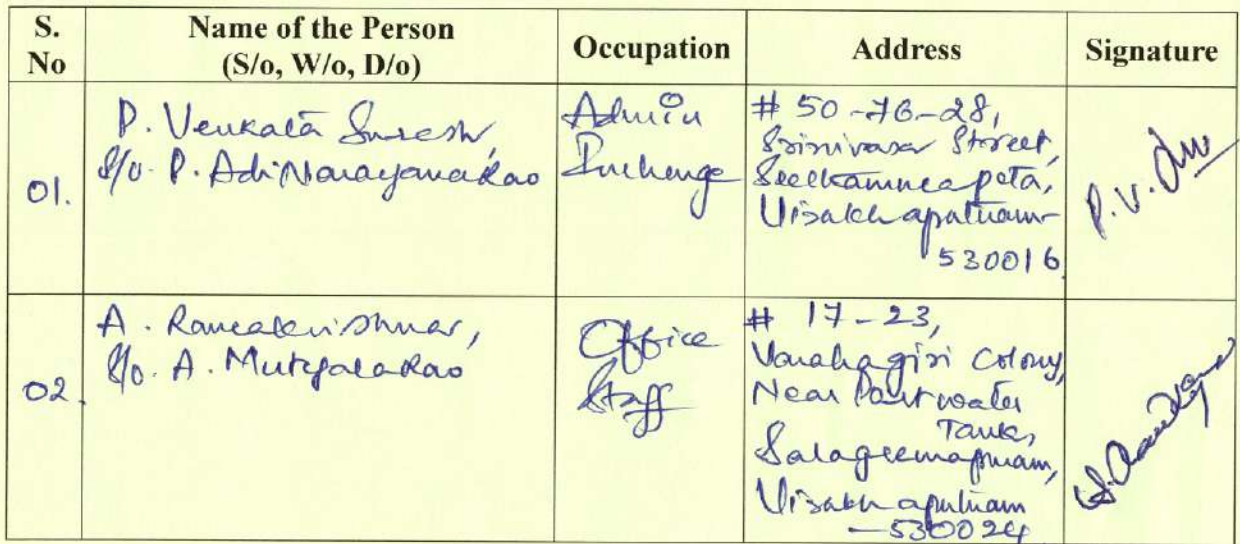 S. No
Name of the Person
(S/o, W/o, D/o)
Occupation
Address
Signature
01.
P. Venkata Suresh,
S/o. P. AdiNarayanaRao
Admin
Incharge
# 50-76-28,
Srinivasa Street,
Seethammapeta,
Visakhapatnam-
530016
P.V.
02.
A. Ramakrishna,
S/o. A. MutyalaRao
Office
Staff
# 17-23,
Varahagiri Colony,
Near water
Tank,
Visakhapatnam
-530024